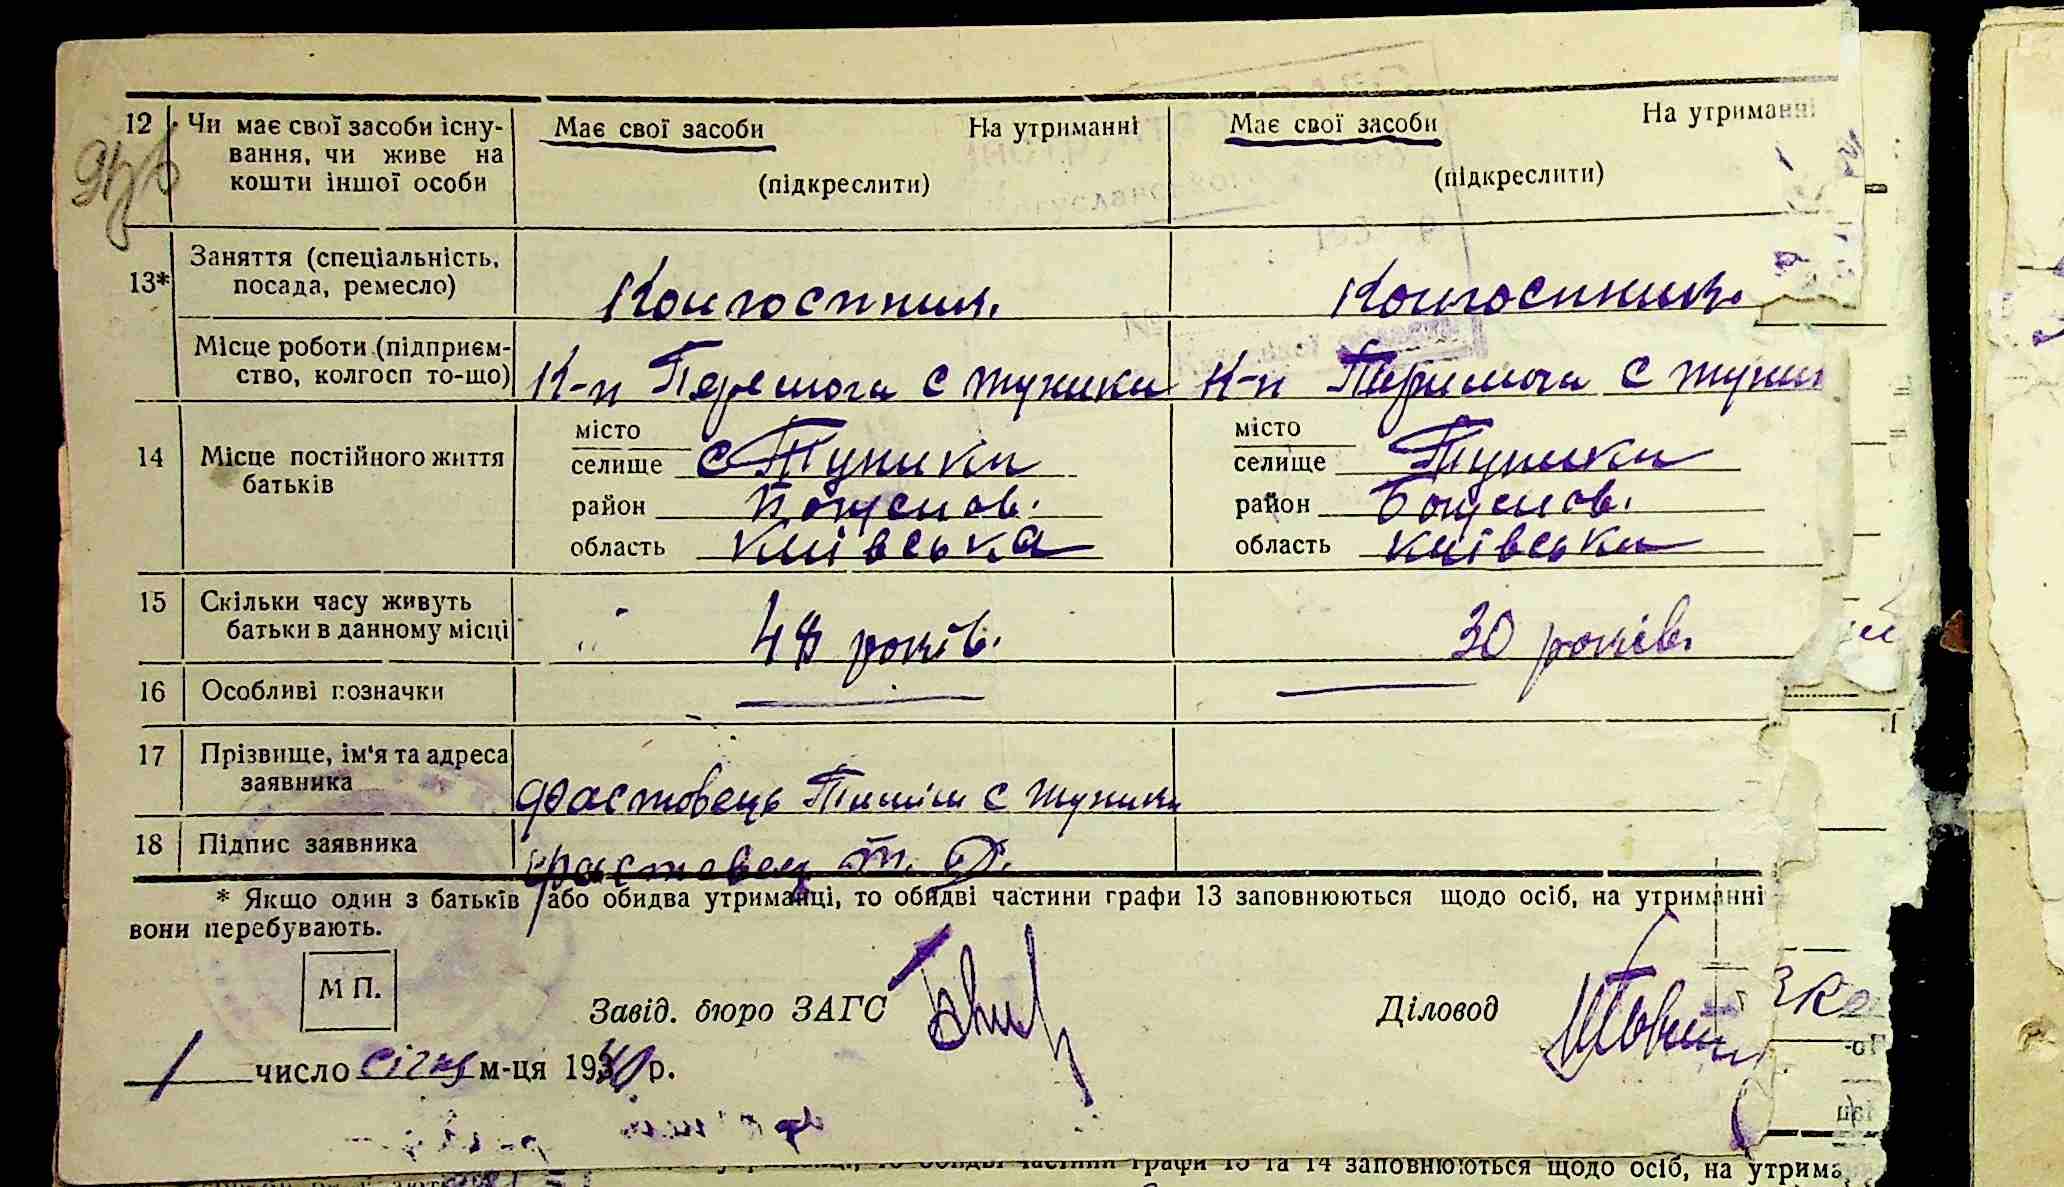 12 Чи має свої засоби існу-
вання, чи живе на
кошти іншої особи
Має свої засоби На утриманні
(підкреслити)
Має свої засоби На утриманні
(підкреслити)
13* Заняття (спеціальність,
посада, ремесло)
Колгоспник.
Колгоспник.
Місце роботи (підприєм-
ство, колгосп то-що)
К-п Перемога с Туники
К-п Перемога с Туники
14 Місце постійного життя
батьків
місто
селище с Туники
район Богуслав.
область Київська
місто
селище Туники
район Богуслав.
область Київська
15 Скільки часу живуть
батьки в данному місці
48 років.
30 років.
16 Особливі позначки
17 Прізвище, ім'я та адреса
заявника
Фастовець с Туники
18 Підпис заявника
Фастовец Т. Ф.
* Якщо один з батьків або обидва утриманці, то обидві частини графи 13 заповнюються щодо осіб, на утриманні
вони перебувають.
М П.
Завід. бюро ЗАГС
Діловод
1 число січня м-ця 1940 р.
графи 13 та 14 заповнюються щодо осіб, на